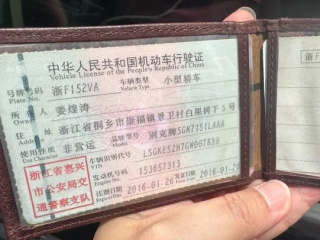 中华人民共和国机动车行驶证
Vehicle License of the People's Republic of China
号牌号码 浙F152VA 车辆类型 小型轿车
Plate No. Vehicle Type
所有人 姜煌涛
住址 浙江省桐乡市崇福镇景卫村白果树下5号
使用性质 非营运 品牌型号 别克牌SGM7151LAAA
Use Character
浙江省嘉兴 车辆识别代号 LSGKE52H7GW007839
市公安局交 VIN
通警察支队 发动机号码 153657313
注册日期 2016-01-26 发证日期 2016-01-26